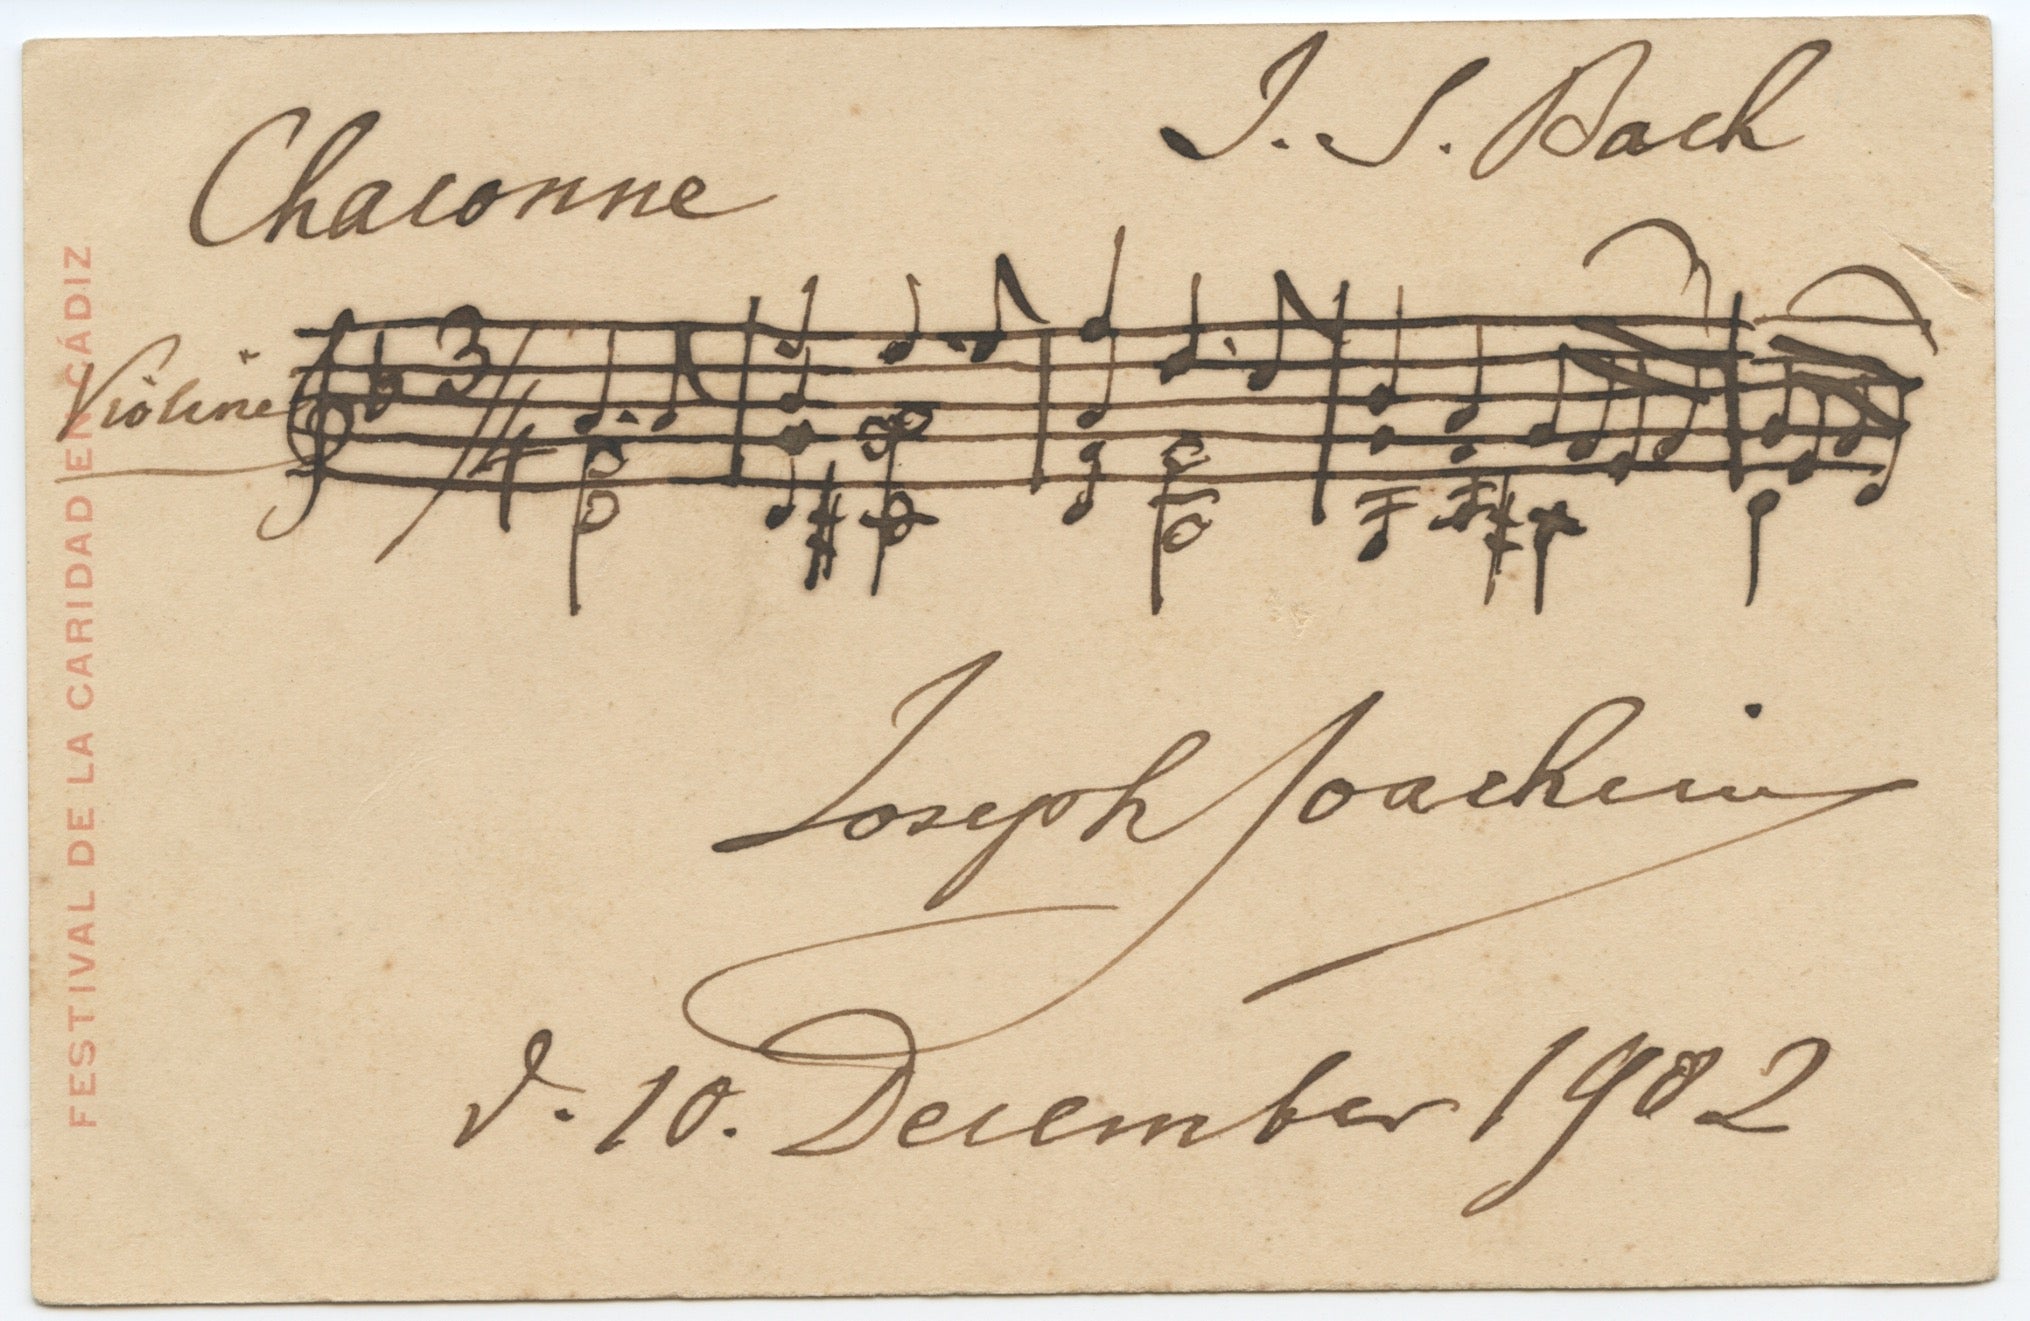 J. S. Bach
Chaconne
Violine
3/4
Joseph Joachim
d. 10. December 1902
FESTIVAL DE LA CARIDAD EN CÁDIZ